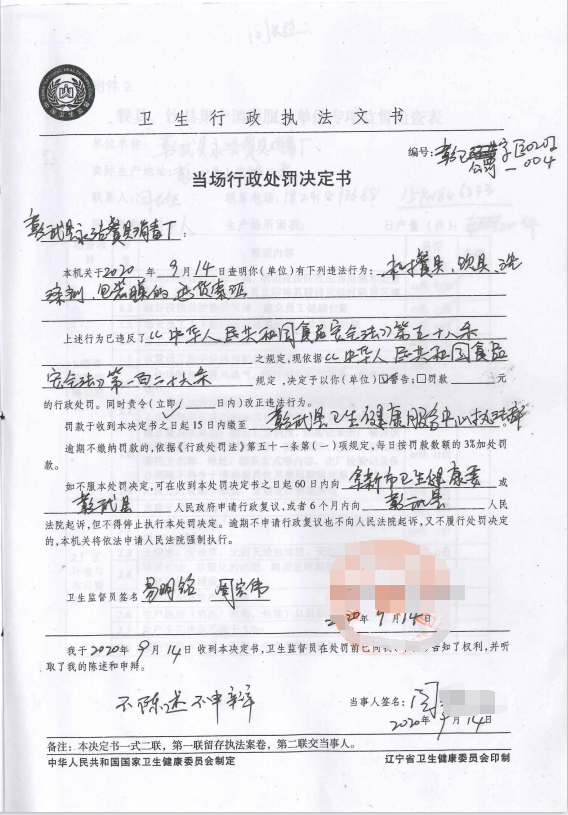 卫生行政执法文书
编号:
当场行政处罚决定书
彰武县永洁餐具消毒厂:
本机关于2020年9月14日查明你(单位)有下列违法行为:
上述行为已违反了《中华人民共和国食品安全法》第五十八条
之规定,现依据《中华人民共和国食品
安全法》第一百二十六条 规定,决定予以你(单位)☑警告;☐罚款 元
的行政处罚。同时责令(立即/ 日内)改正违法行为。
罚款于收到本决定书之日起15日内缴至 彰武县卫生健康服务中心
逾期不缴纳罚款的,依据《行政处罚法》第五十一条第(一)项规定,每日按罚款数额的3%加处罚
款。
如不服本处罚决定,可在收到本处罚决定书之日起60日内向 阜新市卫生健康委 或
彰武县 人民政府申请行政复议,或者6个月内向 彰武县 人民
法院起诉,但不得停止执行本处罚决定。逾期不申请行政复议也不向人民法院起诉,又不履行处罚决定
的,本机关将依法申请人民法院强制执行。
卫生监督员签名
2020年9月14日
我于2020年9月14日收到本决定书,卫生监督员在处罚前已向我 告知了权利,并听
取了我的陈述和申辩。
不陈述不申辩
当事人签名:
2020年9月14日
备注:本决定书一式二联,第一联留存执法案卷,第二联交当事人。
中华人民共和国国家卫生健康委员会制定 辽宁省卫生健康委员会印制